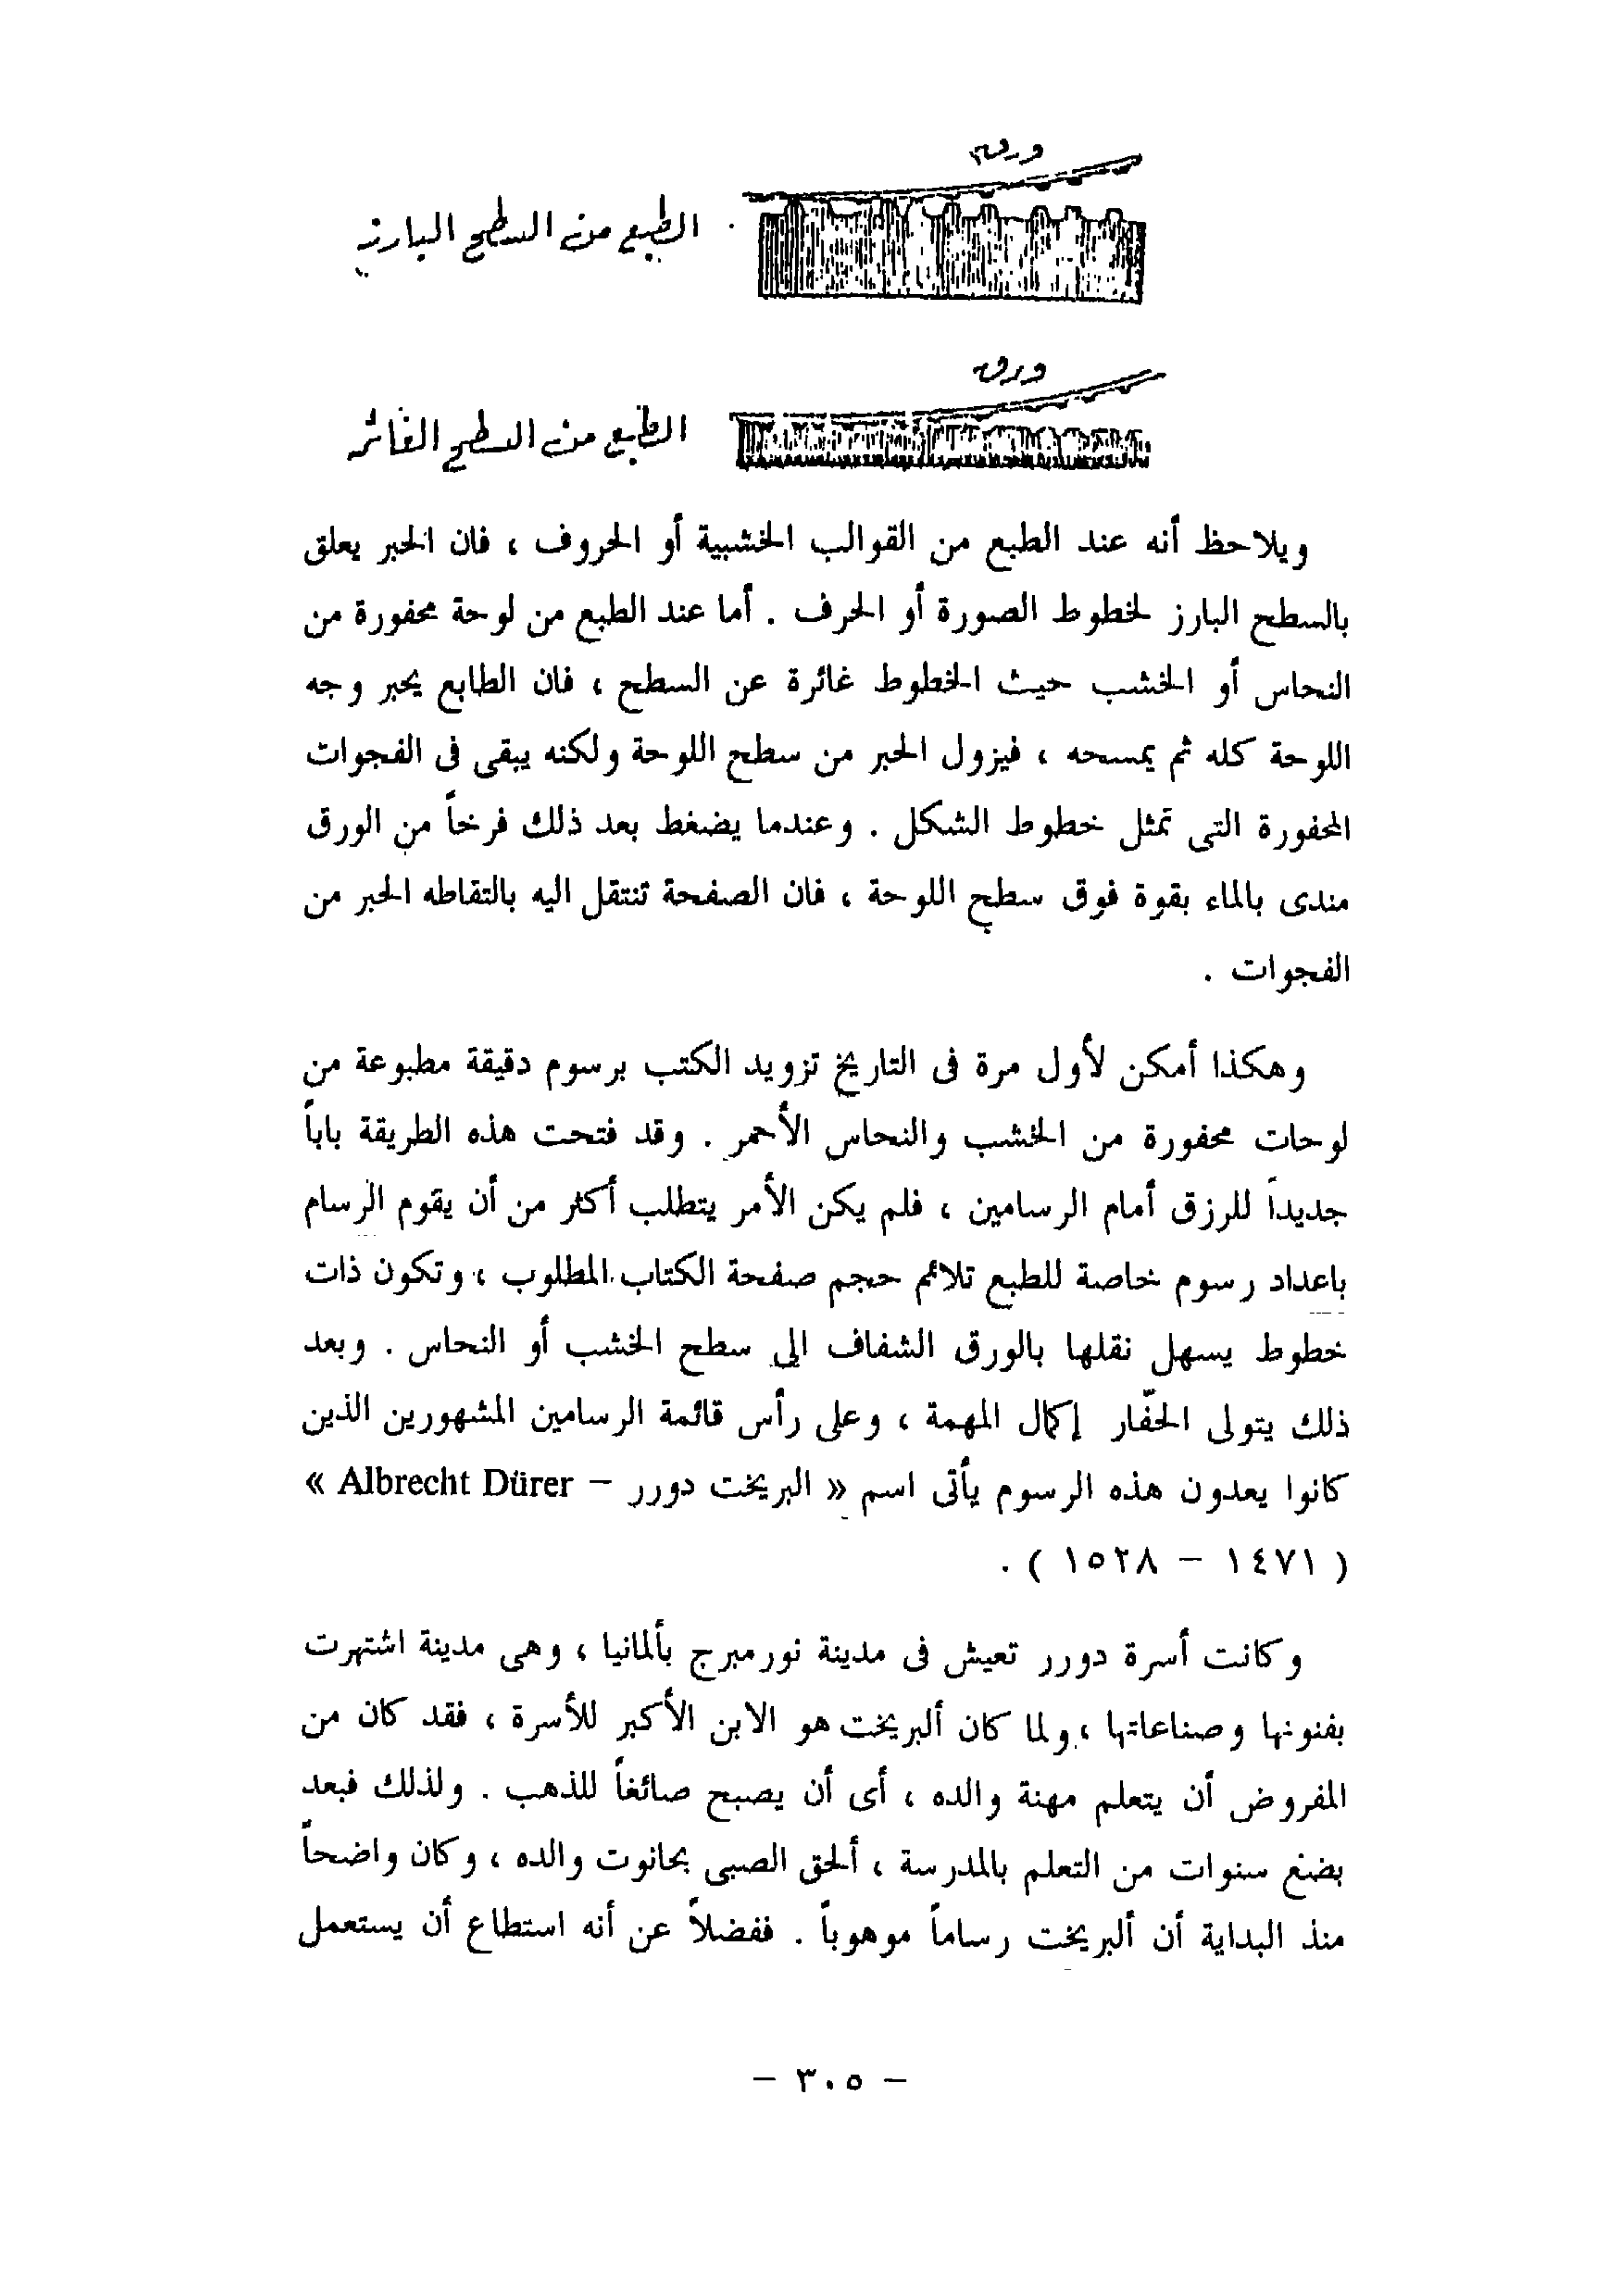 ورق
الطبع من السطح البارز
ورق
الطبع من السطح الغائر
ويلاحظ أنه عند الطبع من القوالب الخشبية أو الحروف ، فان الحبر يعلق
بالسطح البارز لخطوط الصورة أو الحرف . أما عند الطبع من لوحة محفورة من
النحاس أو الخشب حيث الخطوط غائرة عن السطح ، فان الطابع يحبر وجه
اللوحة كله ثم يمسحه ، فيزول الحبر من سطح اللوحة ولكنه يبقى فى الفجوات
المحفورة التى تمثل خطوط الشكل . وعندما يضغط بعد ذلك فرخاً من الورق
مندى بالماء بقوة فوق سطح اللوحة ، فان الصفحة تنتقل اليه بالتقاطه الحبر من
الفجوات .
وهكذا أمكن لأول مرة فى التاريخ تزويد الكتب برسوم دقيقة مطبوعة من
لوحات محفورة من الخشب والنحاس الأحمر . وقد فتحت هذه الطريقة باباً
جديداً للرزق أمام الرسامين ، فلم يكن الأمر يتطلب أكثر من أن يقوم الرسام
باعداد رسوم خاصة للطبع تلائم حجم صفحة الكتاب المطلوب ، وتكون ذات
خطوط يسهل نقلها بالورق الشفاف الى سطح الخشب أو النحاس . وبعد
ذلك يتولى الحفّار إكمال المهمة ، وعلى رأس قائمة الرسامين المشهورين الذين
كانوا يعدون هذه الرسوم يأتى اسم « البريخت دورر – Albrecht Dürer »
( ١٤٧١ – ١٥٢٨ ) .
وكانت أسرة دورر تعيش فى مدينة نورمبرج بألمانيا ، وهى مدينة اشتهرت
بفنونها وصناعاتها ، ولما كان ألبريخت هو الابن الأكبر للأسرة ، فقد كان من
المفروض أن يتعلم مهنة والده ، أى أن يصبح صائغاً للذهب . ولذلك فبعد
بضع سنوات من التعلم بالمدرسة ، ألحق الصبى بحانوت والده ، وكان واضحاً
منذ البداية أن ألبريخت رساماً موهوباً . ففضلاً عن أنه استطاع أن يستعمل
– ٣٠٥ –